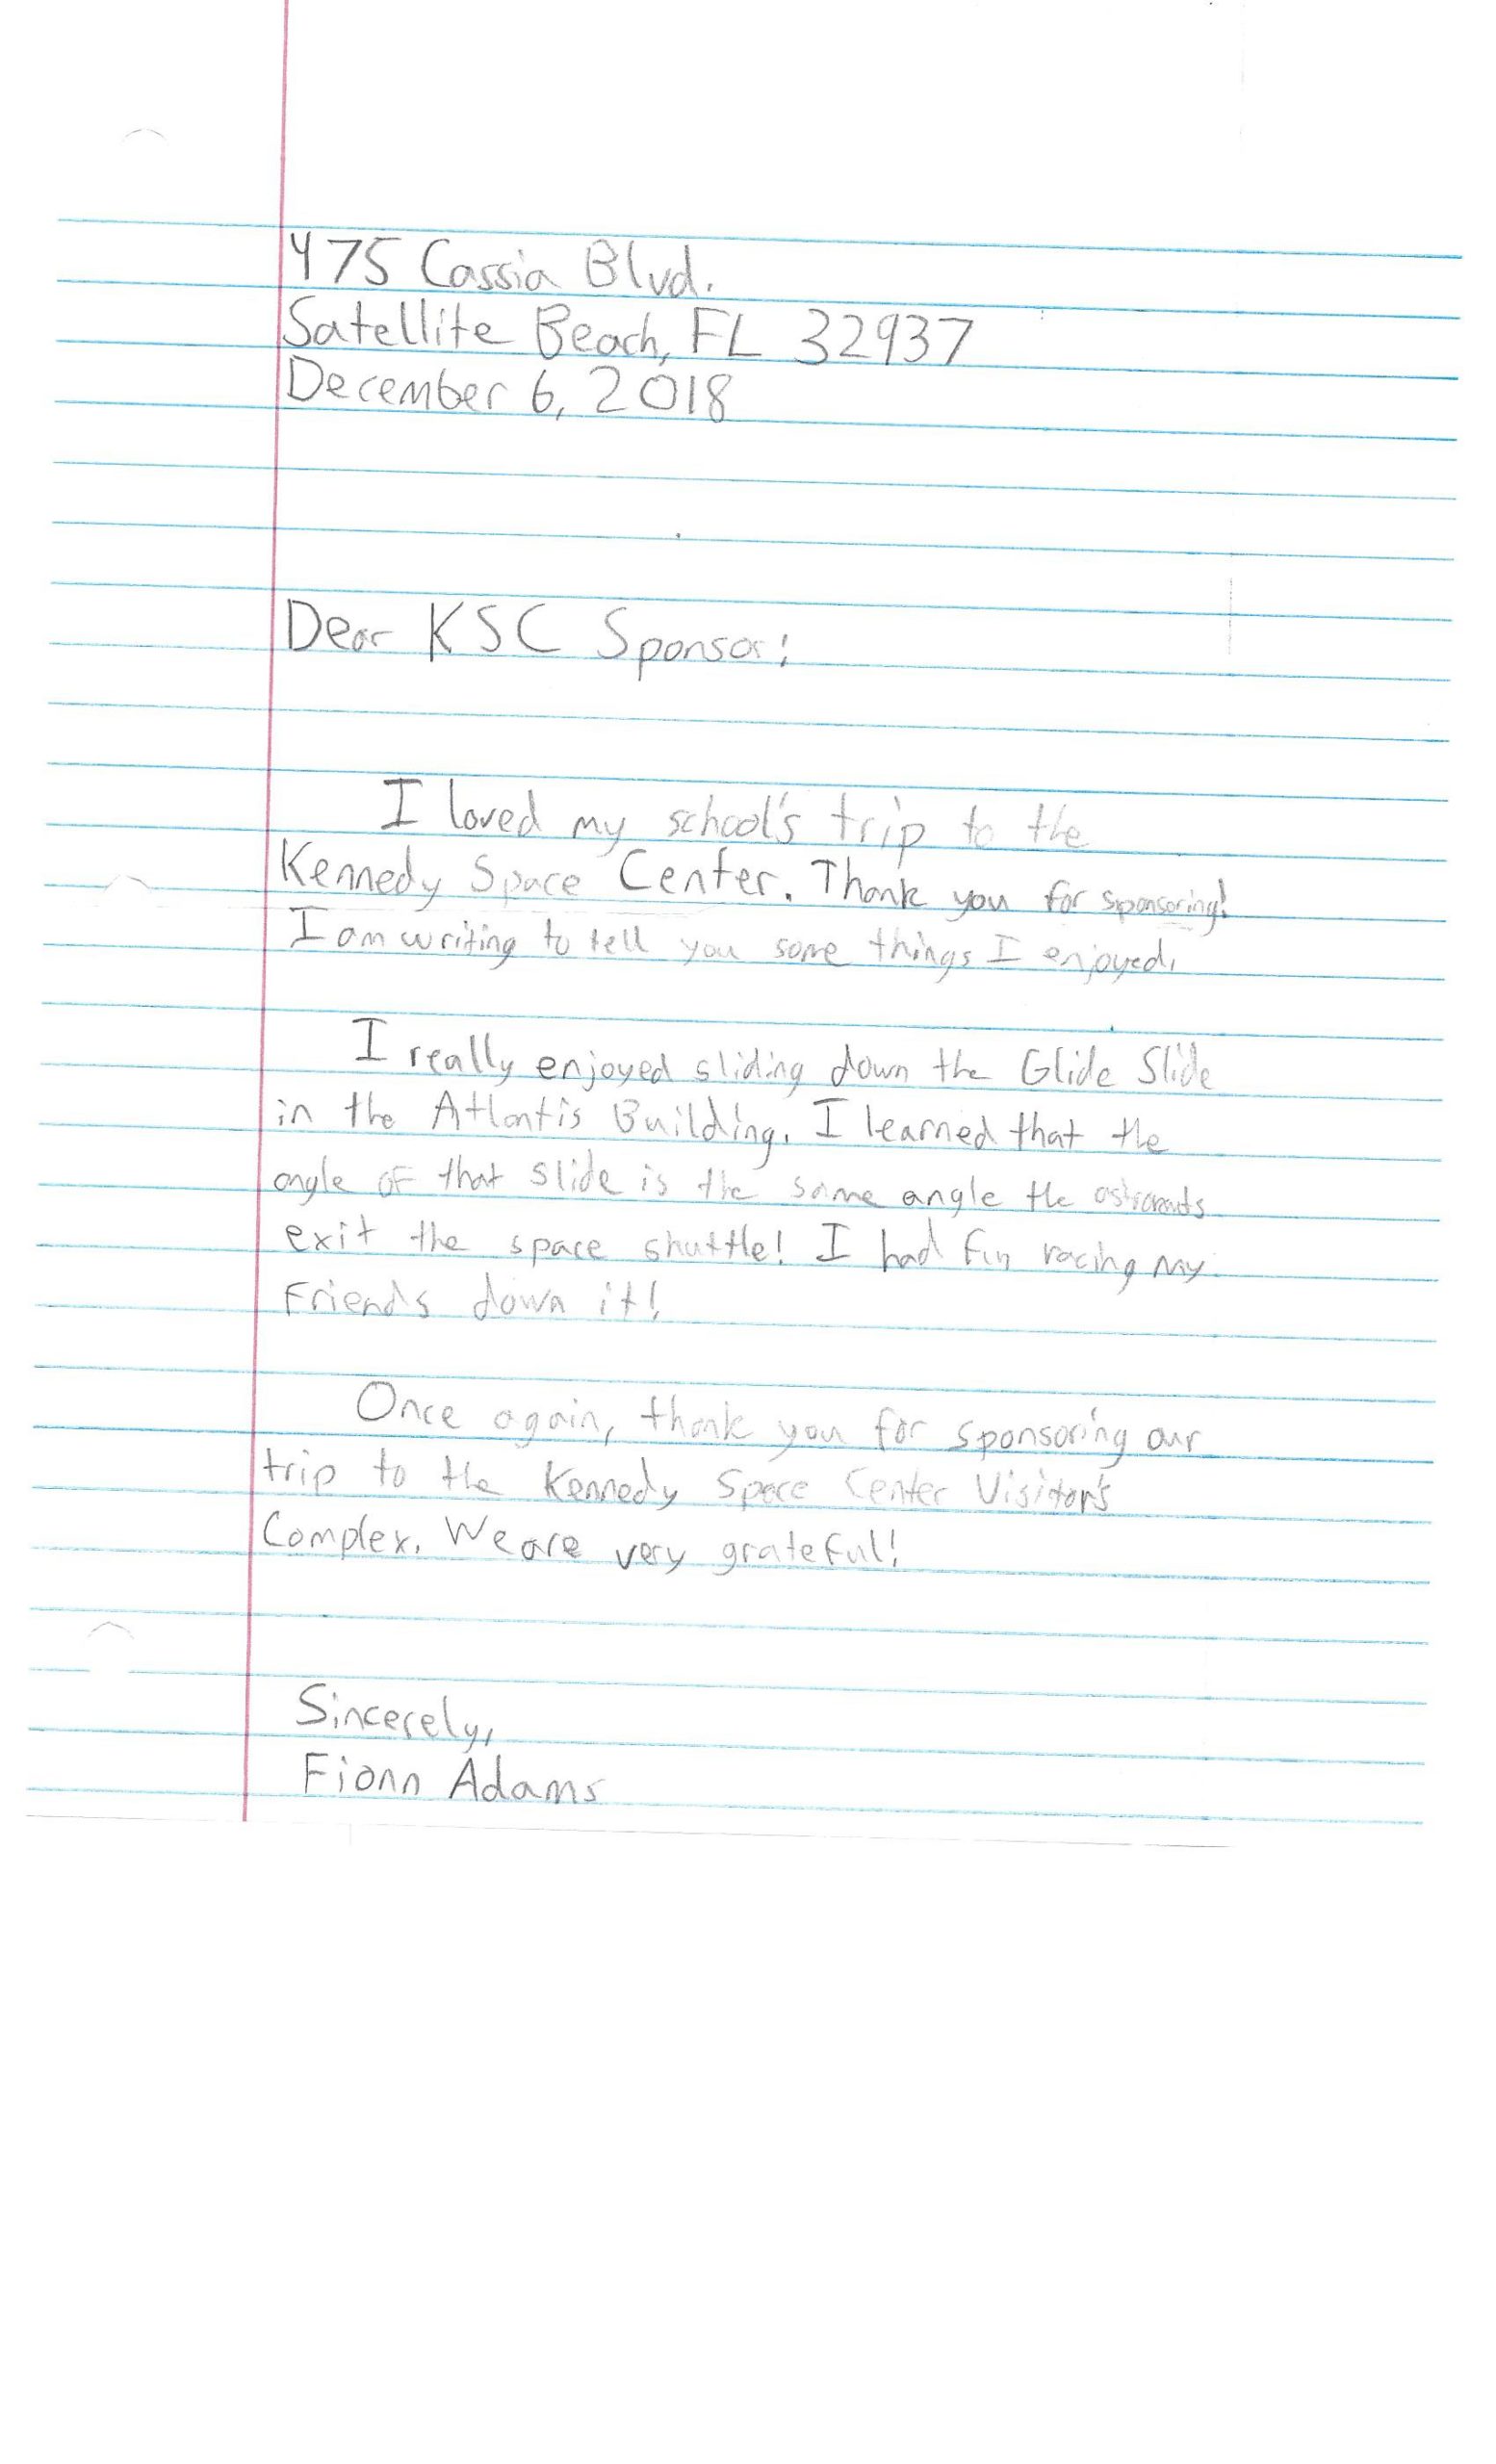 475 Cassia Blvd.
Satellite Beach, FL 32937
December 6, 2018
Dear KSC Sponsor:
I loved my school's trip to the
Kennedy Space Center. Thank you for sponsoring!
I am writing to tell you some things I enjoyed.
I really enjoyed sliding down the Glide Slide
in the Atlantis Building. I learned that the
angle of that slide is the same angle the astronauts
exit the space shuttle! I had fun racing my
friends down it!
Once again, thank you for sponsoring our
trip to the Kennedy Space Center Visitor's
Complex. We are very grateful!
Sincerely,
Fionn Adams